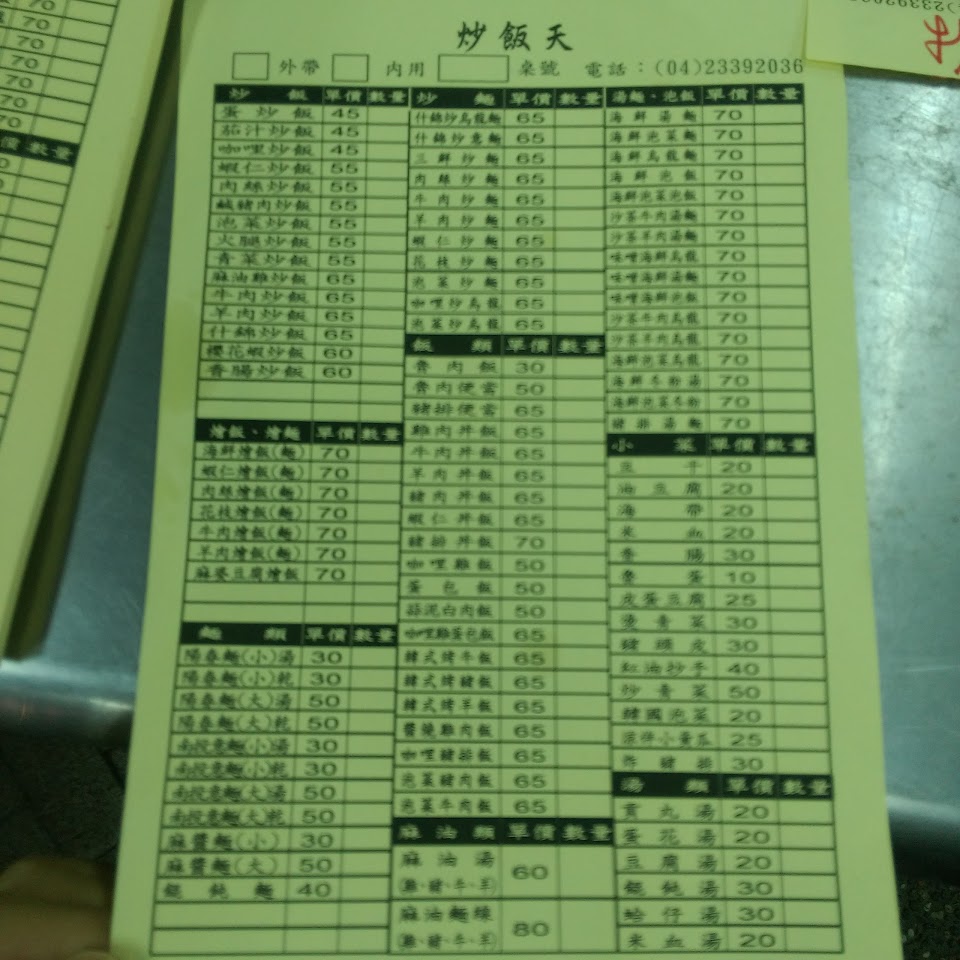 炒飯天
外帶 內用 桌號 電話：(04)23392036
炒飯 單價 數量
蛋炒飯 45
茄汁炒飯 45
咖哩炒飯 45
蝦仁炒飯 55
肉絲炒飯 55
鹹豬肉炒飯 55
泡菜炒飯 55
火腿炒飯 55
青菜炒飯 55
麻油雞炒飯 65
牛肉炒飯 65
羊肉炒飯 65
什錦炒飯 65
櫻花蝦炒飯 60
香腸炒飯 60
燴飯、燴麵 單價 數量
海鮮燴飯(麵) 70
蝦仁燴飯(麵) 70
肉絲燴飯(麵) 70
花枝燴飯(麵) 70
牛肉燴飯(麵) 70
羊肉燴飯(麵) 70
麻婆豆腐燴飯 70
麵類 單價 數量
陽春麵(小)湯 30
陽春麵(小)乾 30
陽春麵(大)湯 50
陽春麵(大)乾 50
南投意麵(小)湯 30
南投意麵(小)乾 30
南投意麵(大)湯 50
南投意麵(大)乾 50
麻醬麵(小) 30
麻醬麵(大) 50
餛飩麵 40
炒麵 單價 數量
什錦炒烏龍麵 65
什錦炒意麵 65
三鮮炒麵 65
肉絲炒麵 65
牛肉炒麵 65
羊肉炒麵 65
蝦仁炒麵 65
花枝炒麵 65
泡菜炒麵 65
咖哩炒烏龍 65
泡菜炒烏龍 65
飯類 單價 數量
魯肉飯 30
魯肉便當 50
豬排便當 65
雞肉丼飯 65
牛肉丼飯 65
羊肉丼飯 65
豬肉丼飯 65
蝦仁丼飯 65
豬排丼飯 70
咖哩雞飯 50
蛋包飯 50
蒜泥白肉飯 50
咖哩雞蛋包飯 65
韓式烤牛飯 65
韓式烤豬飯 65
韓式烤羊飯 65
醬燒雞肉飯 65
咖哩豬排飯 65
泡菜豬肉飯 65
泡菜牛肉飯 65
麻油類 單價 數量
麻油湯 60
(雞、豬、牛、羊)
麻油麵線 80
(雞、豬、牛、羊)
湯麵、泡飯 單價 數量
海鮮湯麵 70
海鮮泡菜麵 70
海鮮烏龍麵 70
海鮮泡飯 70
海鮮泡菜泡飯 70
沙茶牛肉湯麵 70
沙茶羊肉湯麵 70
味噌海鮮烏龍 70
味噌海鮮湯麵 70
味噌海鮮泡飯 70
沙茶牛肉烏龍 70
沙茶羊肉烏龍 70
海鮮泡菜烏龍 70
海鮮冬粉湯 70
海鮮泡菜冬粉 70
豬排湯麵 70
小菜 單價 數量
豆干 20
油豆腐 20
海帶 20
米血 20
香腸 30
魯蛋 10
皮蛋豆腐 25
燙青菜 30
豬頭皮 30
紅油抄手 40
炒青菜 50
韓國泡菜 20
涼拌小黃瓜 25
炸豬排 30
湯類 單價 數量
貢丸湯 20
蛋花湯 20
豆腐湯 20
餛飩湯 30
蛤仔湯 30
米血湯 20